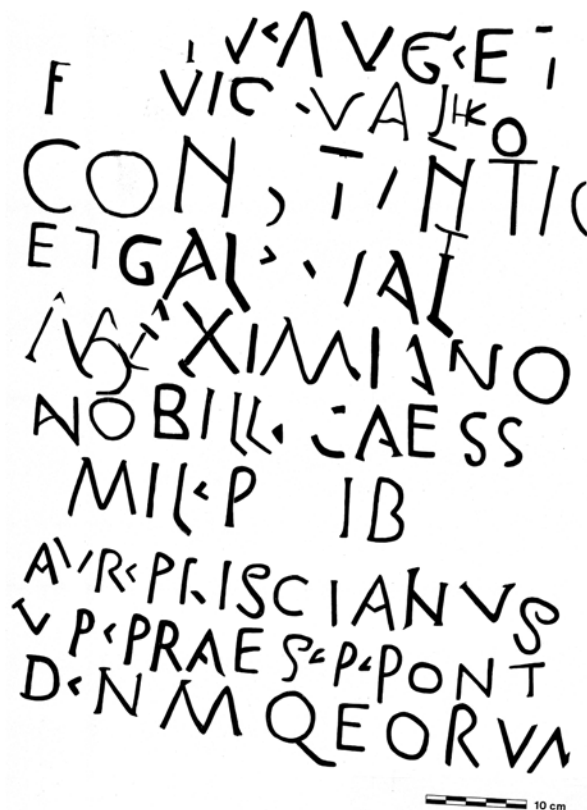 V AVG ET
F VIC VAL
CON T NTIO
ET GAL VAL
MAXIMIANO
NOBILL CAESS
MIL P IB
AVR PRISCIANVS
V P PRAES P PONT
D N M QEORVM
10 cm